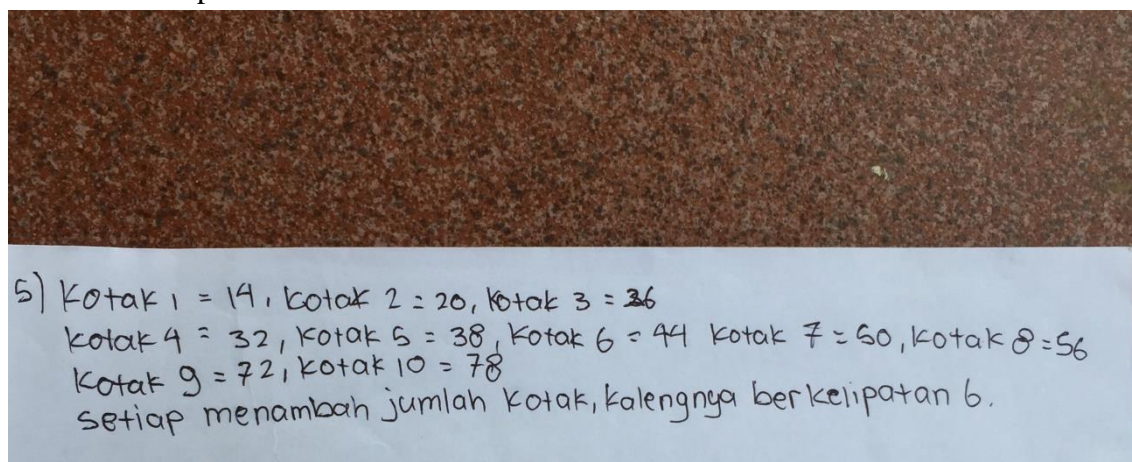 5) Kotak 1 = 14, kotak 2 = 20, Kotak 3 = 26
Kotak 4 = 32, Kotak 5 = 38, Kotak 6 = 44 Kotak 7 = 50, Kotak 8 = 56
Kotak 9 = 72, kotak 10 = 78
setiap menambah jumlah kotak, kalengnya berkelipatan 6.